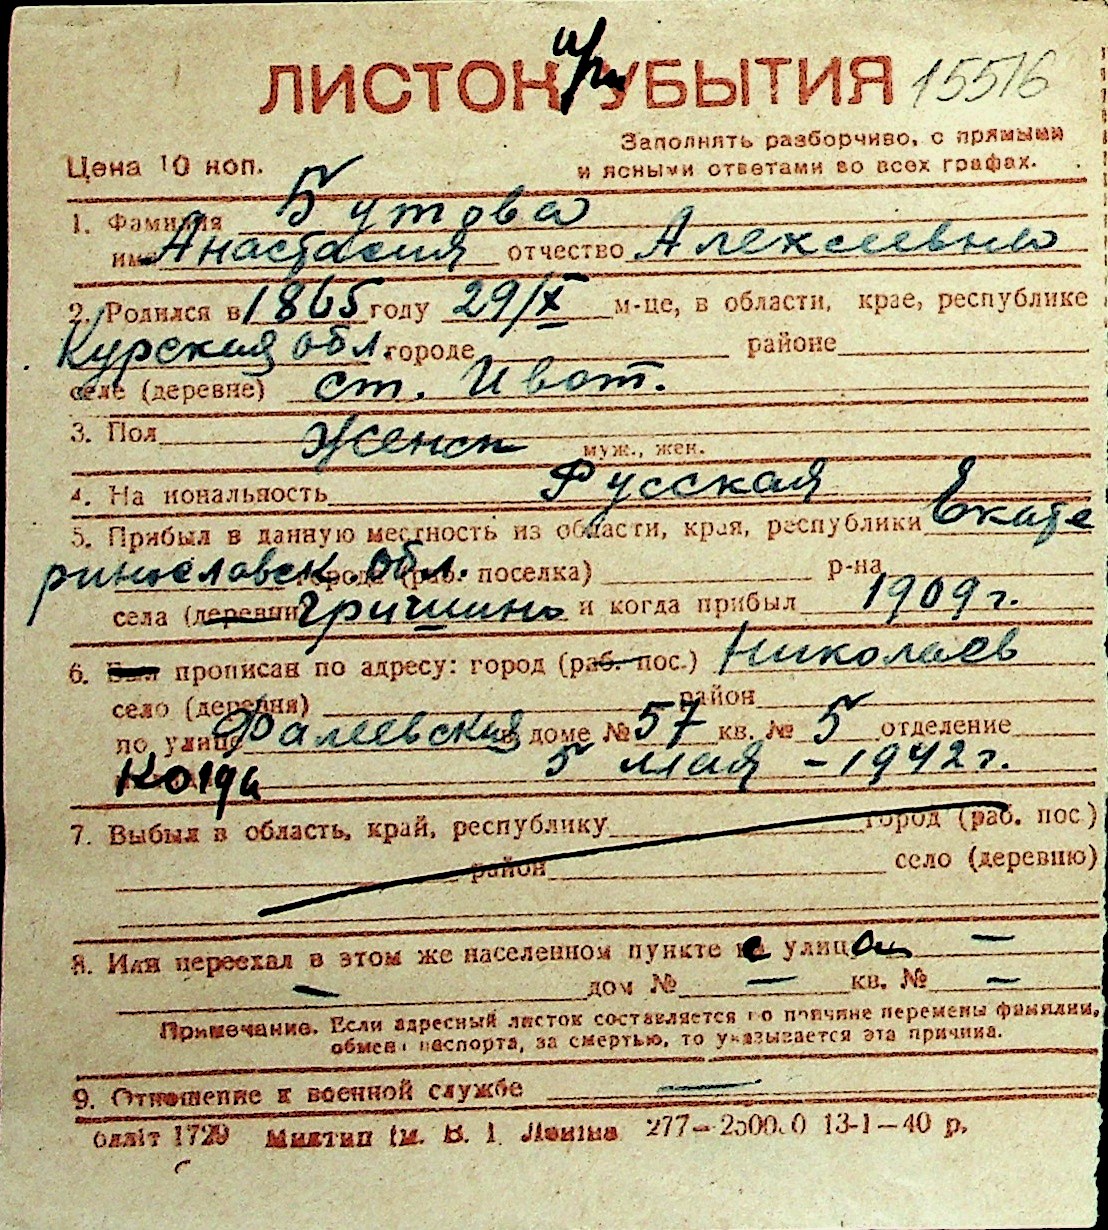 ЛИСТОК при УБЫТИЯ 15516
Заполнять разборчиво, с прямыми
Цена 10 коп. и ясными ответами во всех графах.
1. Фамилия Бутова
имя Анастасия отчество Алексеевна
2. Родился в 1865 году 29/X м-це, в области, крае, республике
Курская обл. городе районе
селе (деревне) ст. Ивот.
3. Пол Женск
муж., жен.
4. Национальность Русская
5. Прибыл в данную местность из области, края, республики Екате
риносλавск. обл. города (раб. поселка) р-на
села (деревни) Гришино и когда прибыл 1909 г.
6. Был прописан по адресу: город (раб. пос.) Николаев
село (деревня) район
по улице Фалеевская в доме № 57 кв. № 5 отделение
Когда 5 мая - 1942 г.
7. Выбыл в область, край, республику город (раб. пос)
район село (деревню)
8. Или переехал в этом же населенном пункте с улицы —
— дом № — кв. № —
Примечание. Если адресный листок составляется по причине перемены фамилии,
обмена паспорта, за смертью, то указывается эта причина.
9. Отношение к военной службе —
Обліт 1729 Миктип ім. В. І. Леніна 277—2500.0 13-1—40 р.